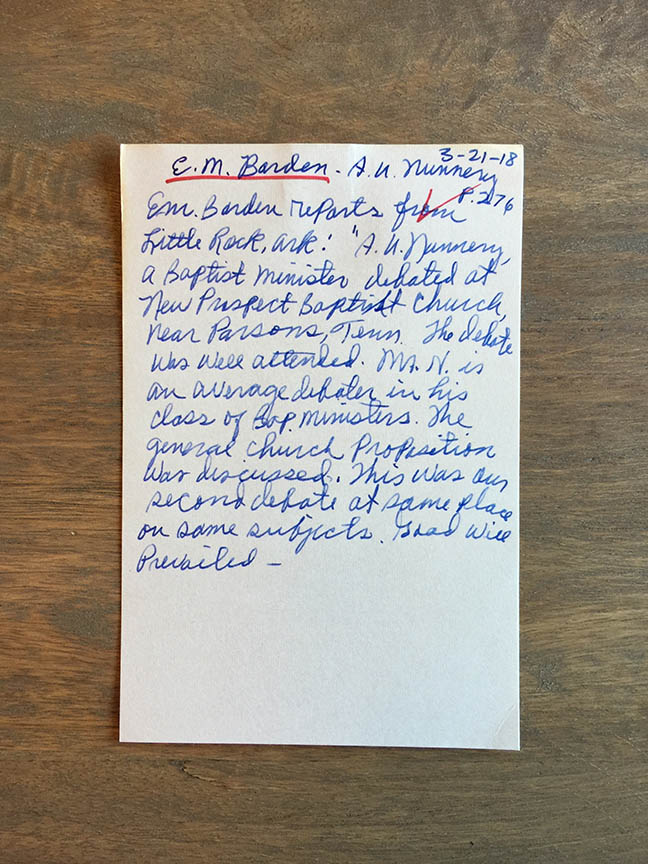 3-21-18
E.M. Borden - A.U. Nunnery
P. 276
E.M. Borden reports from
Little Rock, Ark: "A.U. Nunnery,
a Baptist minister debated at
New Prospect Baptist Church,
near Parsons, Tenn. The debate
was well attended. Mr. N. is
an average debater in his
class of Bap ministers. The
general church proposition
was discussed. This was our
second debate at same place
on same subjects. Good will
Prevailed -